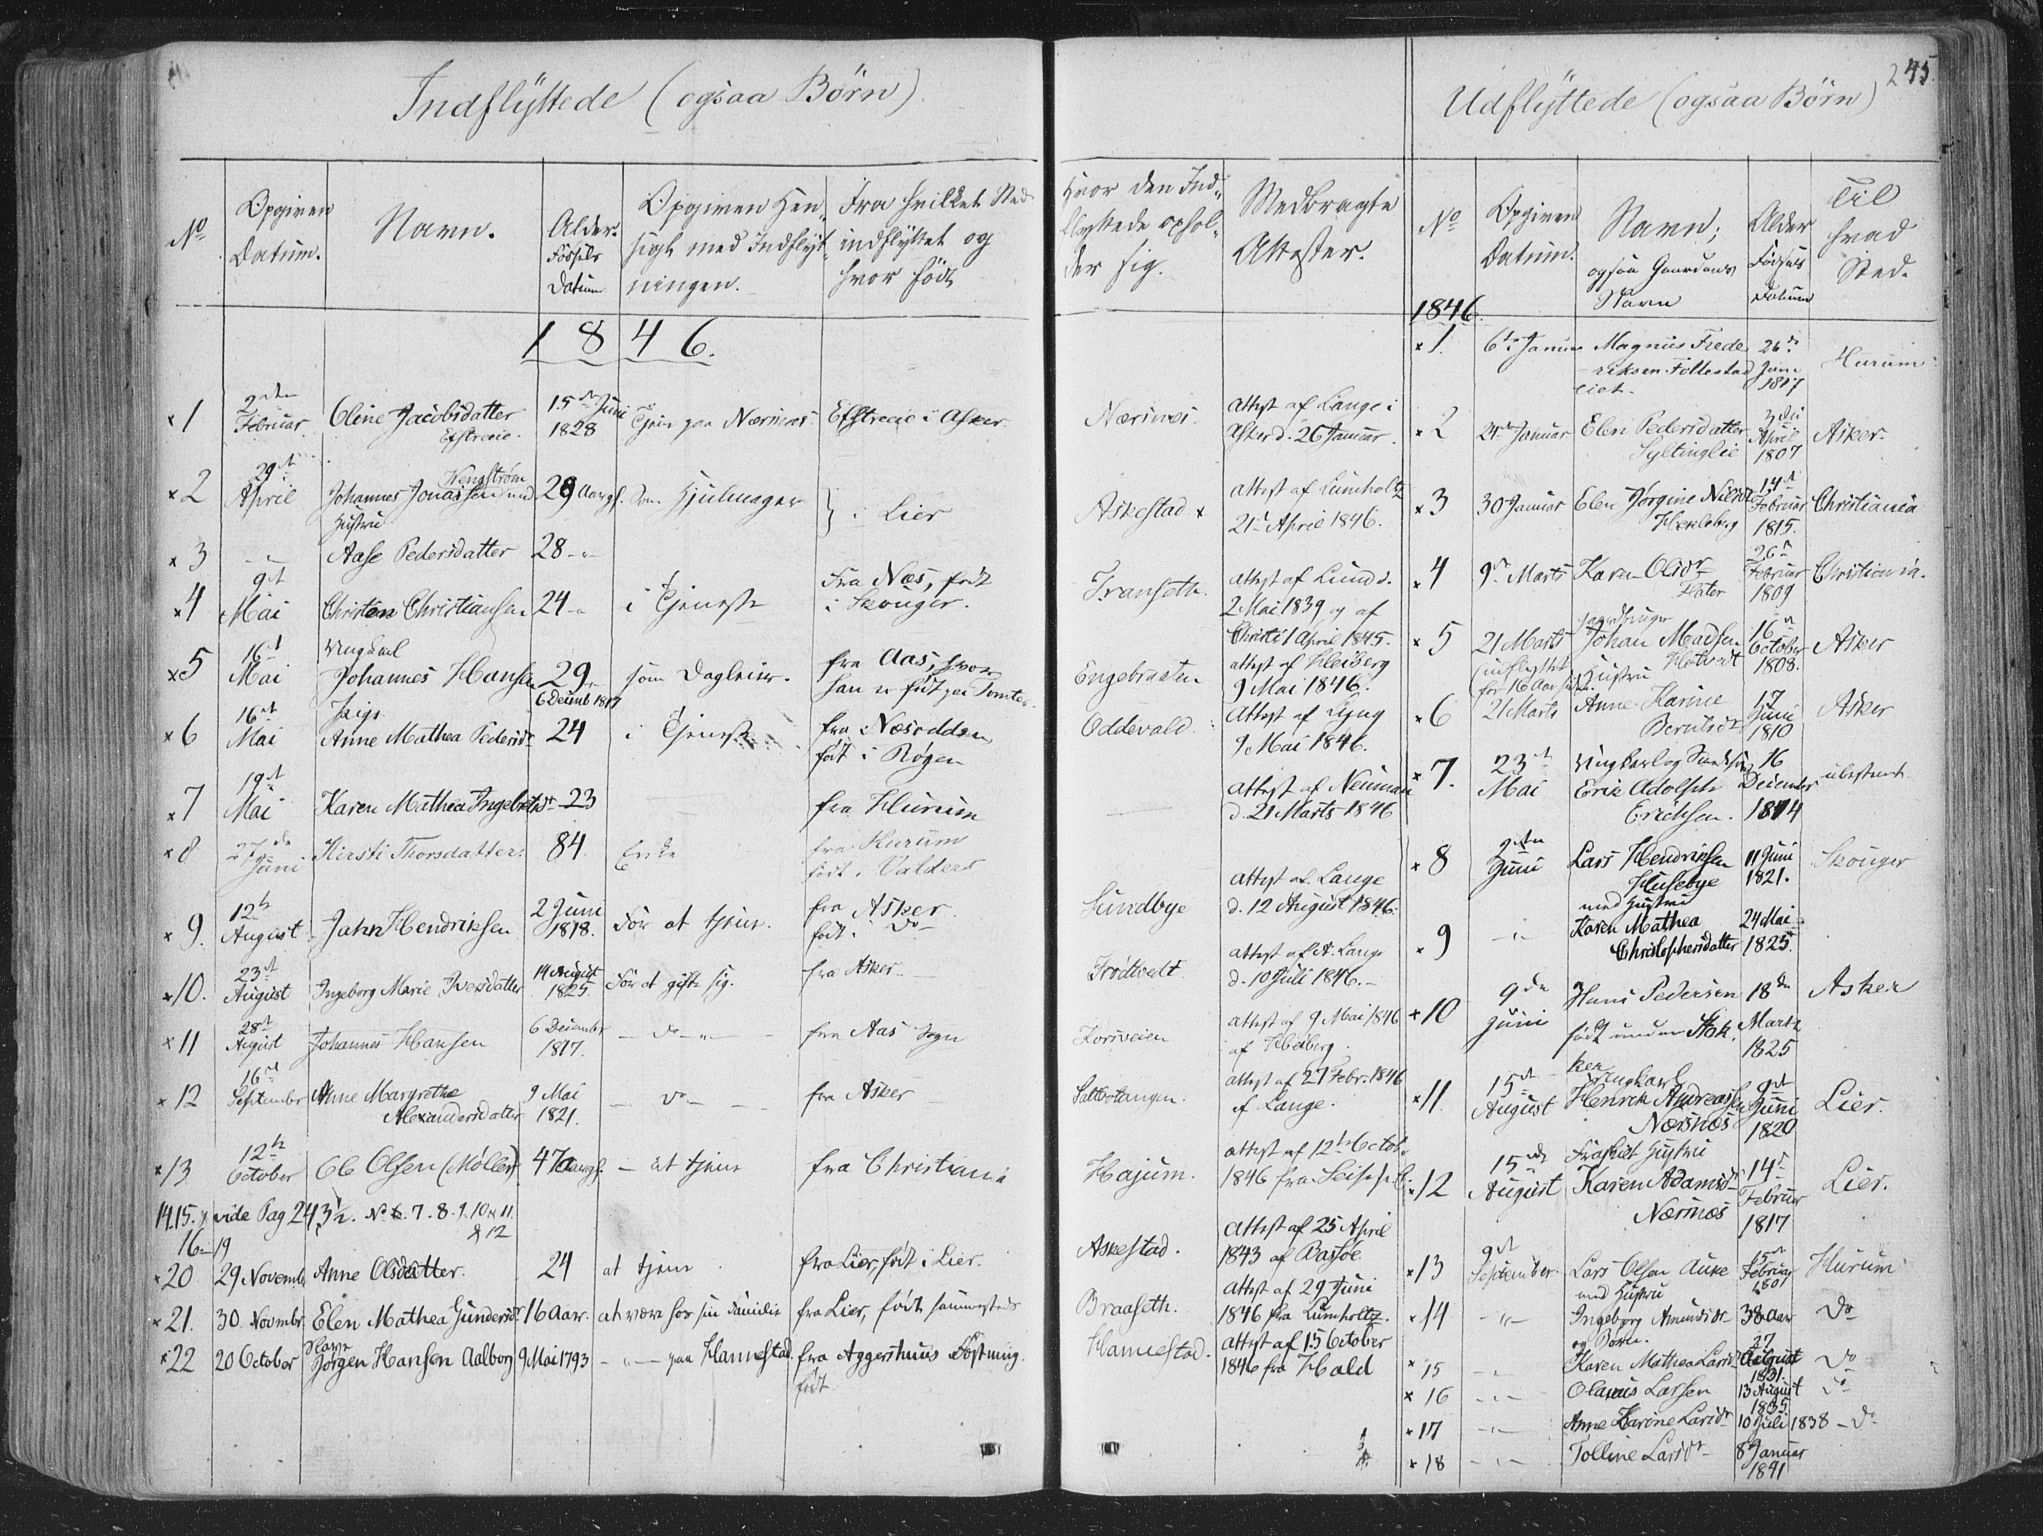 Indflyttede (ogsaa Børn)
Udflyttede (ogsaa Børn)
245.
No
Opgiven
Datum.
Navn.
Alder.
Fødsels
Datum
Opgiven Hen-
sigt med Indflyt-
ningen.
Fra hvilket Sted
indflyttet og
hvor født
Hvor den Ind-
flyttede ophol-
der sig.
Medbragte
Attester.
No
Opgiven
Datum.
Navn;
ogsaa Gaardens
Navn
Alder
Fødsels
Datum
Til
hvad
Sted.
1846.
1 2den Februar Olene Jacobsdatter 15de Juni 1828 Tjene paa Nærsnes. i Asker Nærsnes. Attest af Lange i
Asker d. 26 Januar.
2 29de April Johannes Jonassen med 28 Aargl. som Hjulmager } i Lier Askestad x Attest af Lumholtz
Hustru 21de April 1846.
3 - " - Aase Pedersdatter 28 - " -
4 9de Mai Christen Christiansen 24 - " i Tjeneste Fra Næs, født
i Skouger. Attest af Lund d.
2 Mai 1839 og af
Christi 1 April 1845.
5 16de Mai Ungkarl
Johannes Hansen 29 som Dagleier. fra Aas, hvor
6 Decemb 1817 han er født paa Tomter. Engebraaten Attest af Heiberg
9 Mai 1846.
6 16de Mai Pige
Anne Mathea Pedersdr 24 i Tjeneste fra Næsodden
født i Røgen Oddevald Attest af
9 Mai 1846.
7 19de Mai Karen Mathea Ingebretsdr 23 fra Hurum Attest af Neuman
d. 21 Marts 1846
8 Juni Kirsti Thorsdatter. 84. Enke fra Hurum
født i Valders
9. 12te August John Hendriksen 2 Juni 1818. For at tjene. fra Asker
født i Do Sundbye Attest af Lange
d. 12 August 1846.
10. 23de August Ingeborg Marie Iversdatter 14 August 1825. For at gifte sig. fra Asker Attest af A. Lange
d. 10 Juli 1846.
11 28de August Johannes Hansen 6 December 1817. - Do - " - fra Aas Sogn Korsveien Attest af 9 Mai 1846
af Heiberg.
12 16de September Anne Margrethe
Alexandersdatter 9 Mai 1821. - Do - fra Asker Attest af 27 Febr. 1846
af Lange.
13 12te October Ole Olsen (Møller) 47 Aargl. - at tjene fra Christiania Højum. Attest af 12te Octob.
1846 fra
14.15. vide Pag 243½. No 6. 7. 8. 9. 10 & 11
16-19 & 12
20 29 Novembr Anne Olsdatter. 24 at tjene fra Lier, født i Lier. Askestad. Attest af 25 April
1843 af Bassøe
21. 30. Novembr. Elen Mathea Gundersdr. 16 Aar. at være hos sin Familie fra Lier, født sammesteds Braaseth. Attest af 29 Juni
1846 fra Lumholtz.
22 20 October Slave
Jørgen Hansen Aalborg 9 Mai 1793 - " - paa Hannestad. fra Aggershuus Fæstning.
født Hannestad. Attest af 15 October
1846 fra Hald
1846.
1. 6te Januar Magnus Frede-
riksen Follestad
eiet. 26de Juni 1817 Hurum
2 24de Januar Elen Pedersdatter
Syltinglie 3die April 1807 Asker.
3 30 Januar Elen Jørgine Nielsdr
14de Februar 1815. Christiania
4 9de Marts Karen Olsdr
26de Februar 1809 Christiania.
5 21 Marts Johan Madsen
16de October 1808. Asker
(indflyttet Hustru
for 16 Aar siden.
6 21 Marts Anne Karine
Berntsdr 17 Juni 1810 Asker
7. 23de Mai Ungkarl og
Eric Adolph
Erichsen. 16 December 1814 ubestemt
8 2den Juni Lars Hendriksen
Husebye
med Hustru 11 Juni 1821. Skouger
9 - " - Karen Mathea
Christophersdatter 24 Mai 1825.
10 9de Juni Hans Pedersen
født under Stok-
ker 18de Marts 1825 Asker
11. 15de August Ungkarl
Henrik Andreassen
Nærsnæs 9de Juni 1820 Lier.
12 15de August Fraskilt Hustru
Karen Adamsdr
Nærsnæs 14de Februar 1817 Lier.
13 9de September. Lars Olsen Auke
med Hustru 15de Februar 1801 Hurum
14 - " - Ingeborg Amundsdr
og Børn. 38 Aar Do
15 - " - Karen Mathea Larsdr 27 August 1831. Do
16 - " - Olaus Larsen 13 August 1835. Do
17 - " - Anne Karine Larsdr 10 Juli 1838 - Do
18 - " - Tolline Larsdr 8 Januar 1841